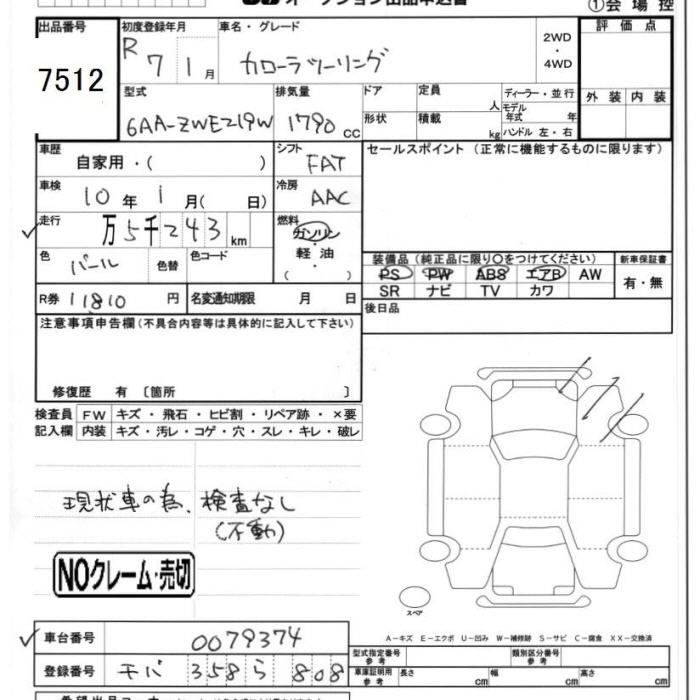 オークション出品申込書 ①会場控
出品番号 初度登録年月 車名・グレード 評価点
7512 R 7 1月 カローラツーリング 2WD・4WD
型式 排気量 ドア 定員 人 ディーラー・並行 外装 内装
6AA-ZWE219W 1790 CC 形状 積載 kg モデル年式 年 ハンドル 左・右
車歴 自家用・( ) シフト FAT セールスポイント (正常に機能するものに限ります)
車検 10年 1月( 日) 冷房 AAC
走行 万5千243 km 燃料 ガソリン・軽油・( )
色 パール 色替 色コード
装備品 (純正品に限り〇をつけてください) 新車保証書
PS PW ABS エアB AW 有・無
SR ナビ TV カワ
R券 11810 円 名変通知期限 月 日 後日品
注意事項申告欄 (不具合内容等は具体的に記入して下さい)
修復歴 有 〔箇所 〕
検査員 FW キズ・飛石・ヒビ割・リペア跡・×要
記入欄 内装 キズ・汚レ・コゲ・穴・スレ・キレ・破レ
現状車の為、検査なし
(不動)
NOクレーム・売切
スペア
A-キズ E-エクボ U-凹み W-補修跡 S-サビ C-腐食 XX-交換済
車台番号 0079374
型式指定番号 参考 類別区分番号 参考
登録番号 モバ 358 ら 808
車庫証明用 参考 長さ cm 幅 cm 高さ cm